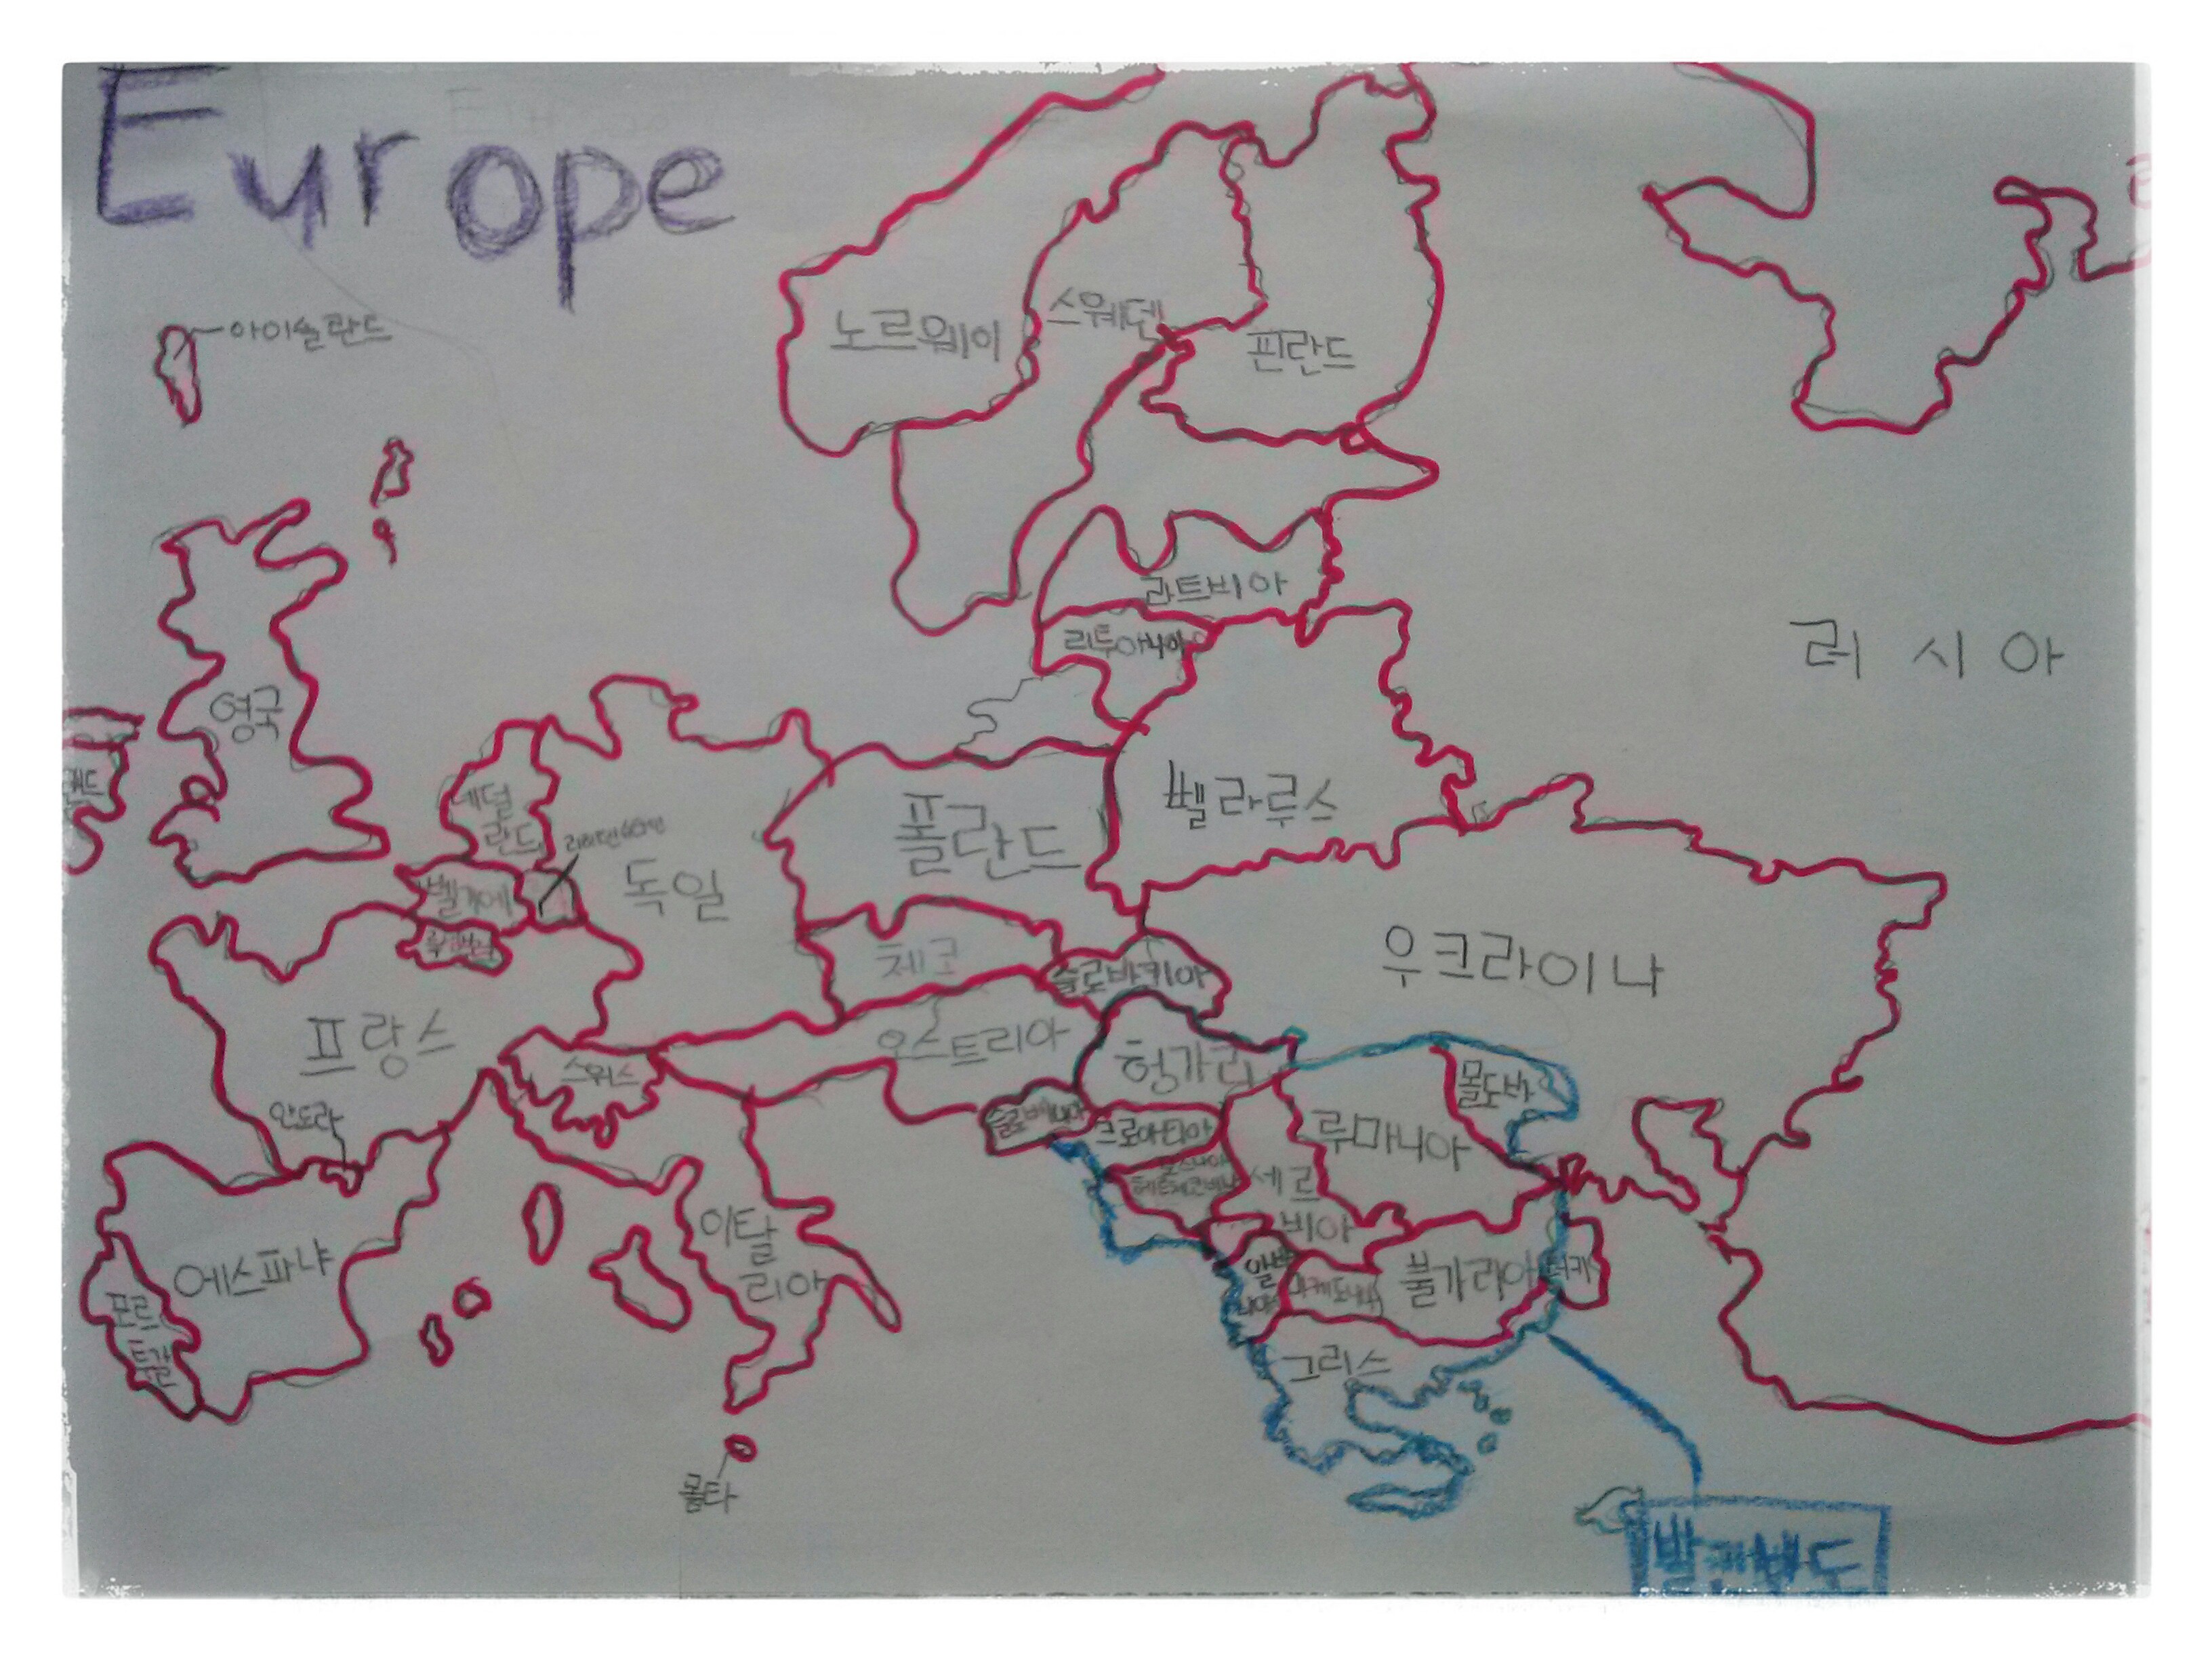 Europe
아이슬란드
노르웨이
스웨덴
핀란드
라트비아
리투아니아
러시아
영국
네덜
란드
독일
폴란드
벨라루스
벨기에
체코
슬로바키아
우크라이나
프랑스
스위스
오스트리아
헝가리
몰도바
안도라
슬로베니아
크로아티아
루마니아
세르
비아
에스파냐
포르
투갈
이탈
리아
알바
니아
마케도니아
불가리아
터키
그리스
몰타
발칸반도